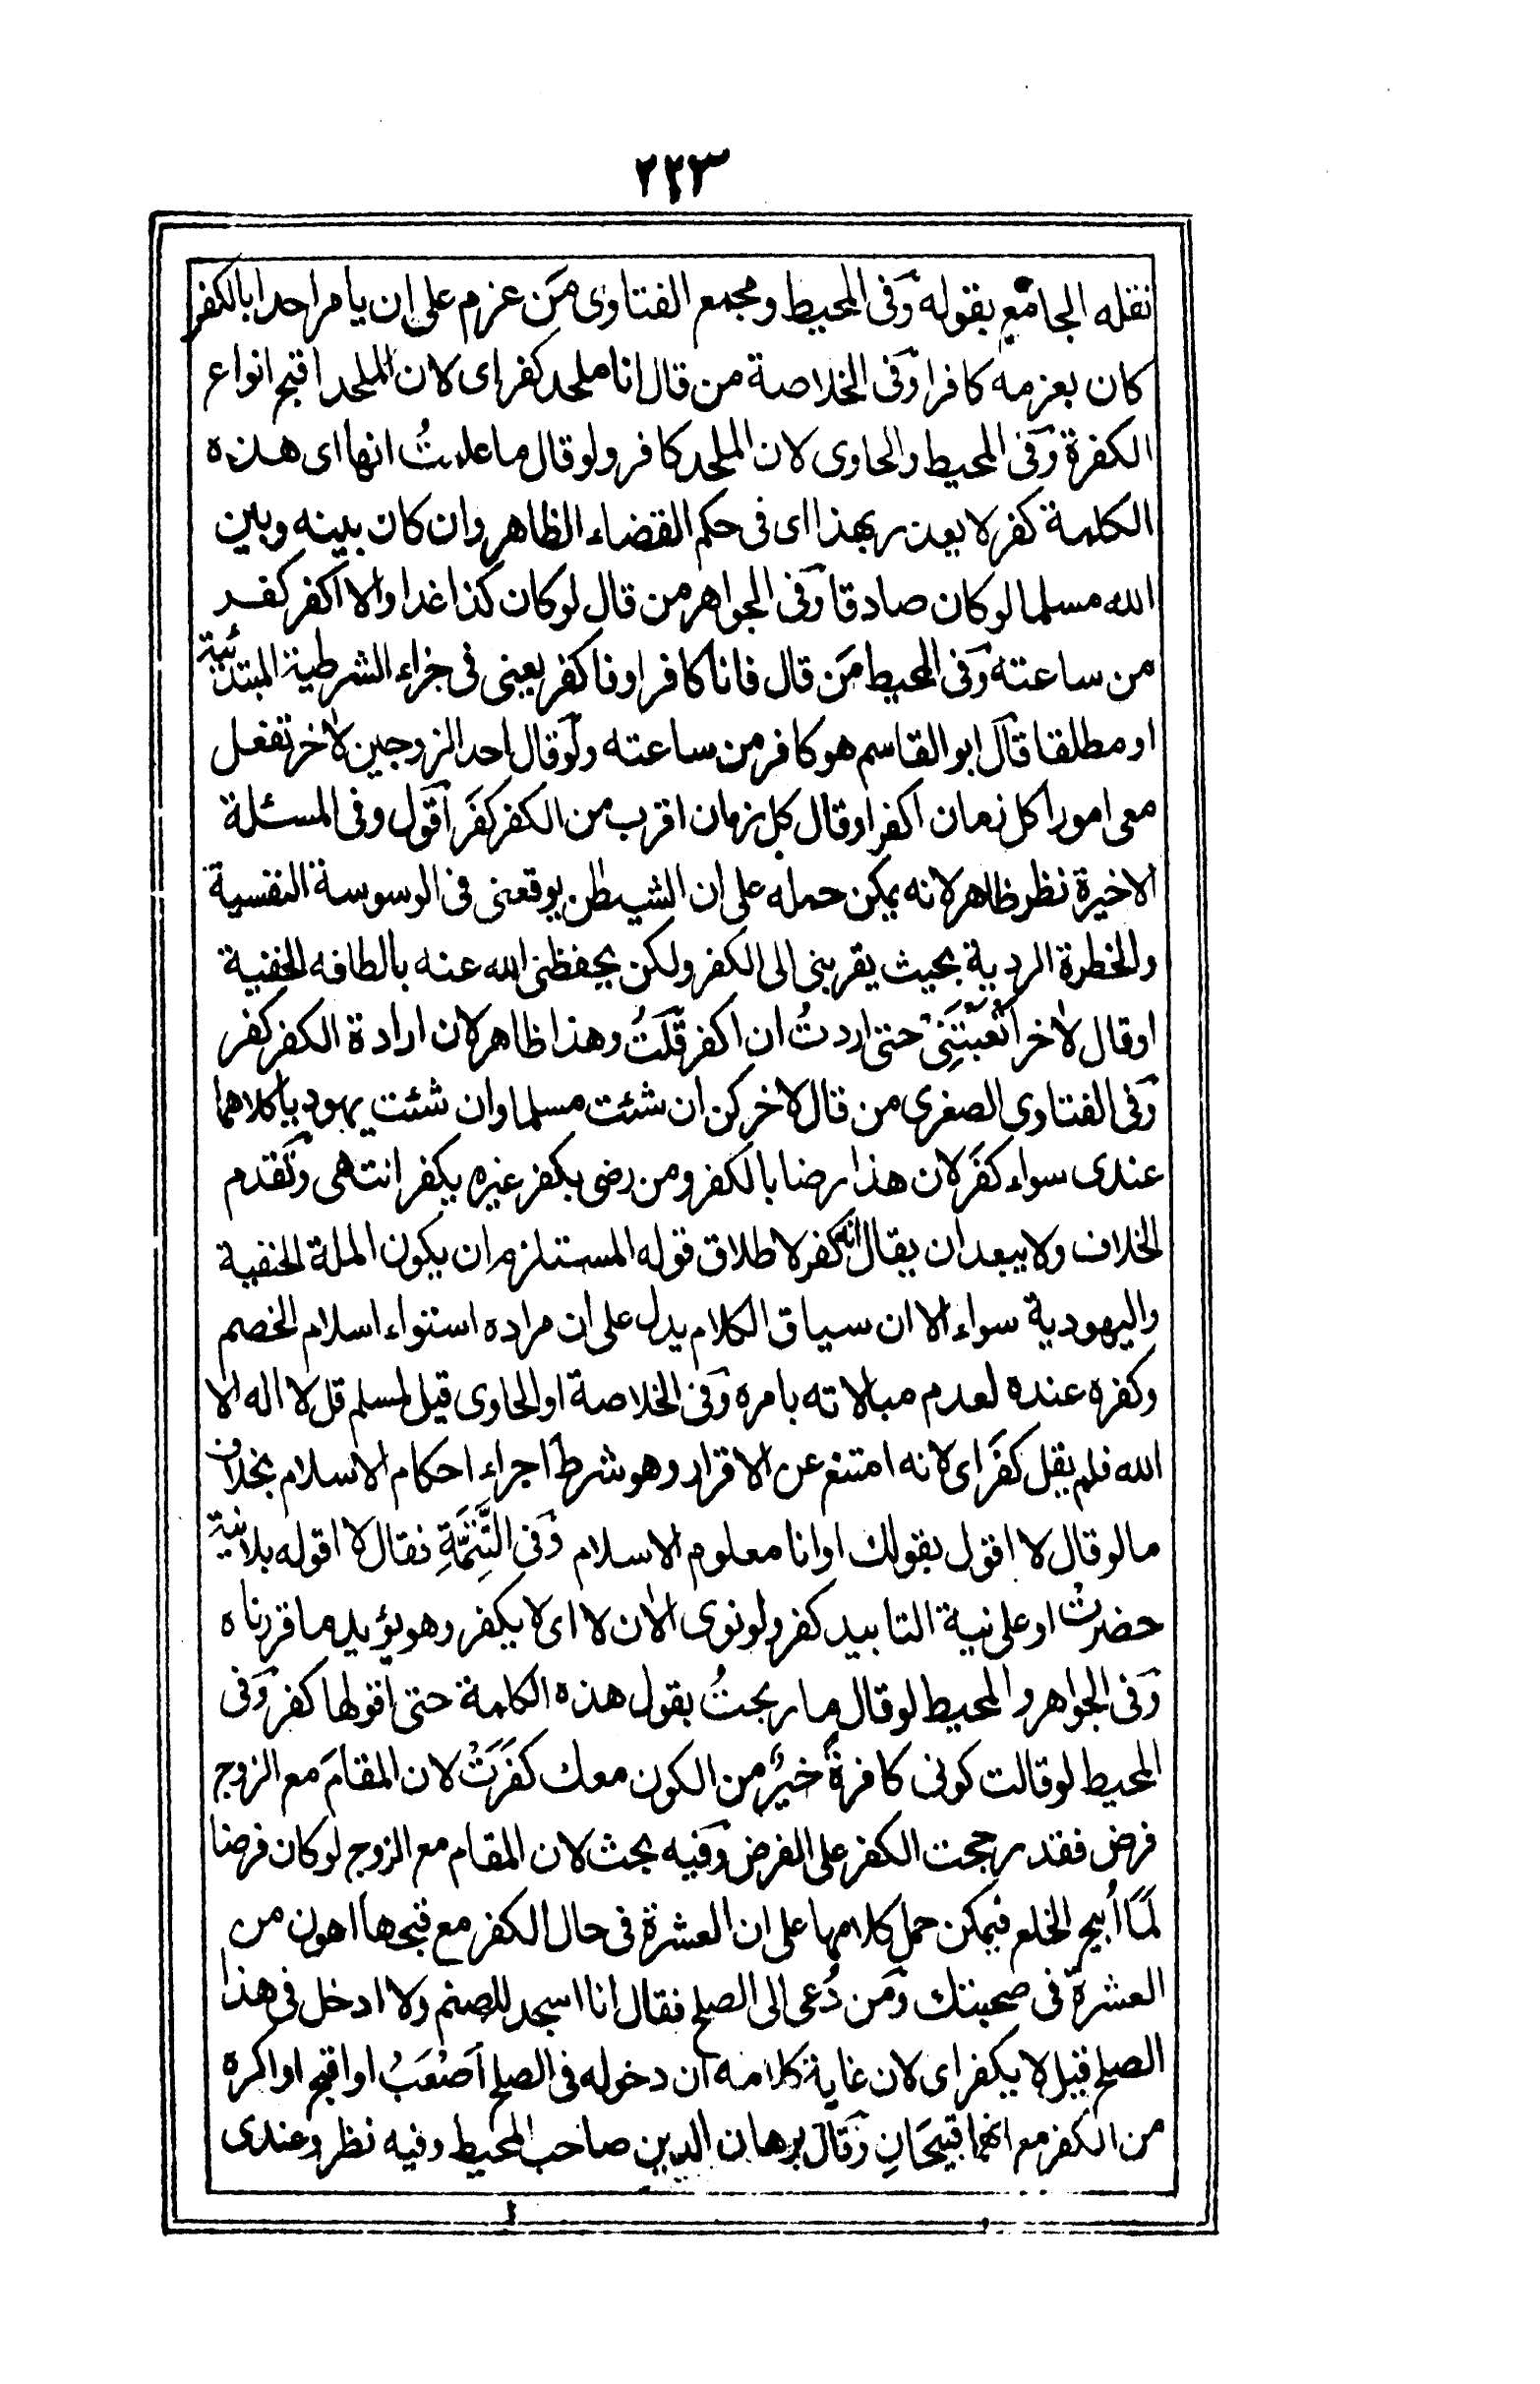 ٢٢٣
نقله الجامع بقوله وَفى المحيط ومجمع الفتاوى مَن عزم على ان يامر احدا بالكفر
كان بعزمه كافرا وَفى الخلاصة من قال انا ملحد كفر اى لان الملحد اقبح انواع
الكفرة وَفى المحيط والحاوى لان الملحد كافر ولو قال ما علمتُ انها اى هذه
الكلمة كفر لا يعذر بهذا اى فى حكم القضاء الظاهر وان كان بينه وبين
الله مسلما لو كان صادقا وَفى الجواهر من قال لو كان كذا غدا والا اكفر كفر
من ساعته وَفى المحيط مَن قال فانا كافر او فاكفر يعنى فى جزاء الشرطية المبتدئية
او مطلقا قالَ ابو القاسم هو كافر من ساعته ولَو قال احد الزوجين لاٰخر تفعل
معى امورا كل زمان اكفر او قال كل زمان اقرب من الكفر كفَر اَقول وفى المسئلة
الاخيرة نظر ظاهر لانه يمكن حمله على ان الشيطٰن يوقعنى فى الوسوسة النفسية
والخطرة الردية بحيث يقربنى الى الكفر ولكن يحفظنى الله عنه بالطافه الخفية
او قال لاٰخر اَتْعَبْتَنِىْ حتى اردتُ ان اكفر قُلَتُ وهذا ظاهر لان ارادة الكفر كفر
وَفى الفتاوى الصغرى من قال لاخر كن ان شئت مسلما وان شئت يهوديا كلاهما
عندى سواء كفَر لان هذا رضا بالكفر ومن رضى بكفر غيره يكفر انتهى وَتقدم
الخلاف ولا يبعد ان يقال انه كفر لاطلاق قوله المستلزم ان يكون الملة الحنفية
واليهودية سواء الا ان سياق الكلام يدل على ان مراده استواء اسلام الخصم
وكفره عنده لعدم مبالاته بامره وَفى الخلاصة او الحاوى قيل لمسلم قل لا اله الا
الله فلم يقل كفَر اى لانه امتنع عن الاقرار وهو شرط اجراء احكام الاسلام بخلاف
ما لو قال لا اقول بقولك او انا معلوم الاسلام وَفى التَّتِمَّةِ فقال لا اقوله بلا نية
حضرتْ او على نية التابيد كفر ولو نوى الاٰن لا اى لا يكفر وهو يؤيد ما قررناه
وَفى الجواهر والمحيط لو قال ما ربحتُ بقول هذه الكلمة حتى اقولها كفر وَفى
المحيط لو قالت كونى كافرةً خيرٌ من الكون معك كفَرَتْ لان المقامَ مع الزوج
فرض فقد رجحت الكفر على الفرض وَفيه بحث لان المقام مع الزوج لو كان فرضا
لَمَا اُبيح الخلع فيمكن حمل كلامها على ان العشرة فى حال الكفر مع قبحها اهون من
العشرة فى صحبتك وَمَن دُعى الى الصلح فقال انا اسجد للصنم ولا ادخل فى هذا
الصلح قيل لا يكفر اى لان غاية كلامه ان دخوله فى الصلح اَصْعَبُ او اقبح او اكره
من الكفر مع انهما قبيحَانِ وَقال برهان الدين صاحب المحيط وفيه نظر وعندى